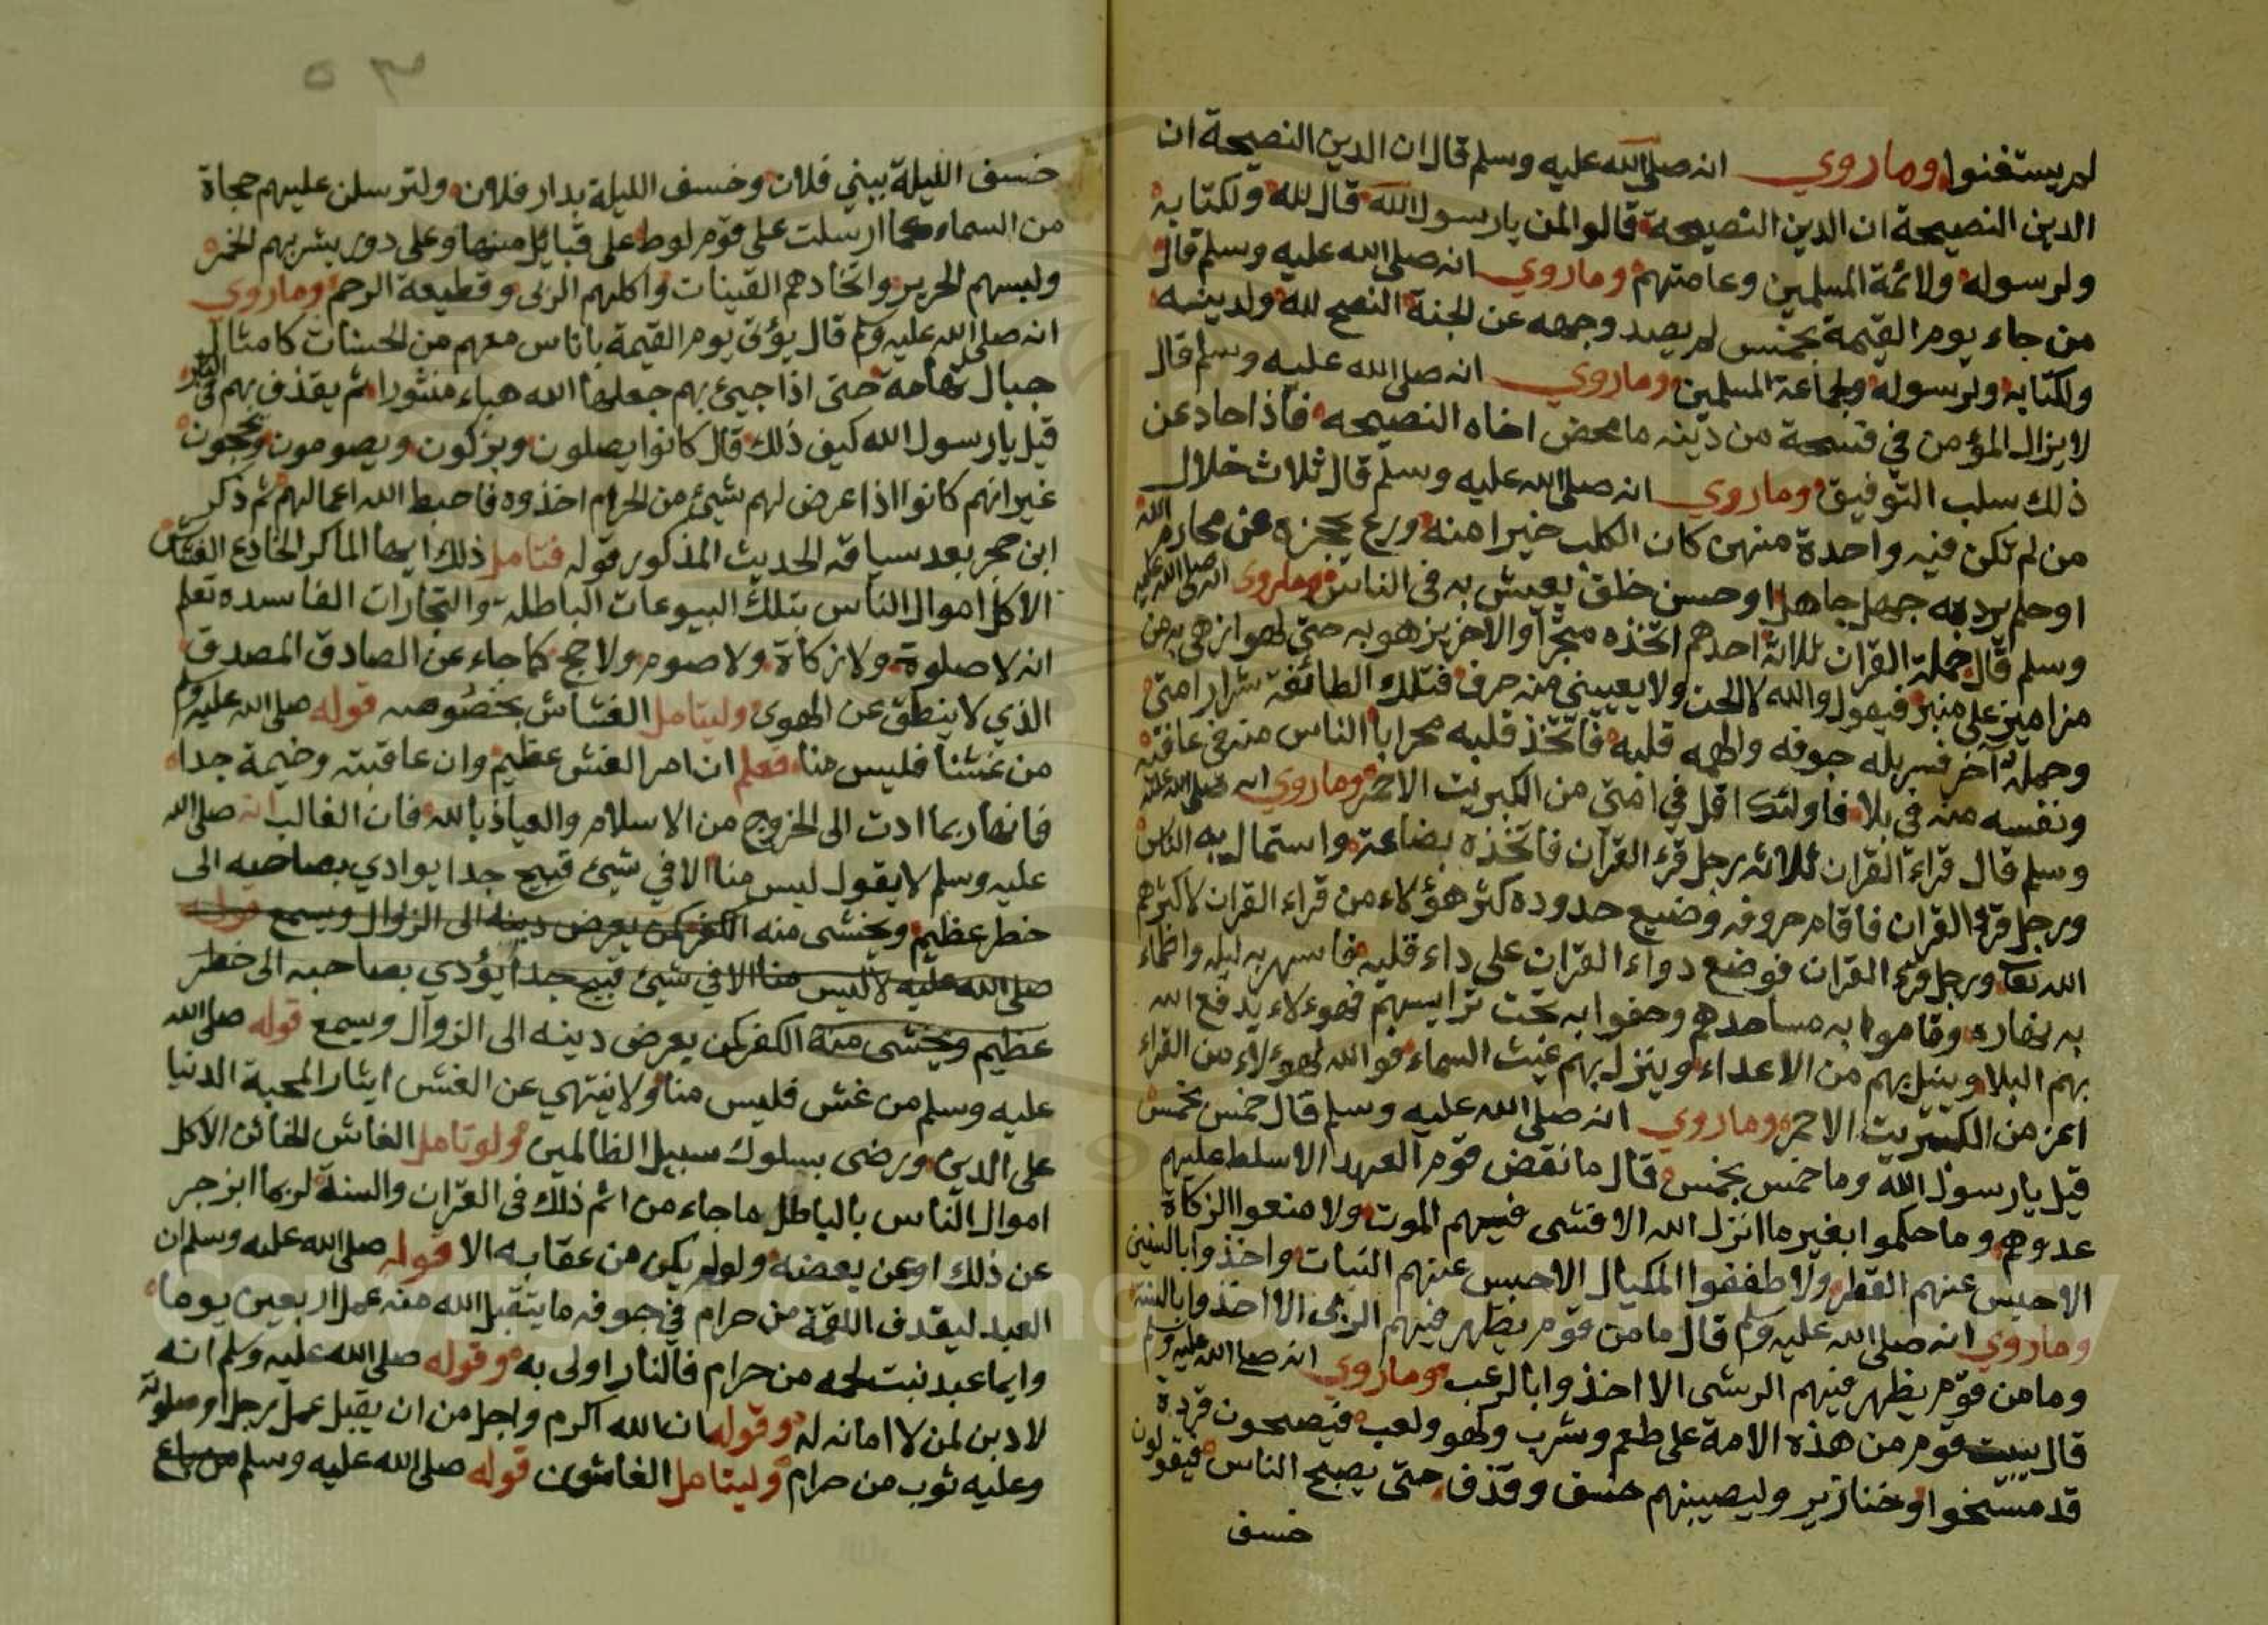 لم يستغنوا وما روي انه صلى الله عليه وسلم قال ان الدين النصيحة ان
الدين النصيحة ان الدين النصيحة قالوا لمن يا رسول الله قال لله ولكتابه
ولرسوله ولائمة المسلمين وعامتهم وما روي انه صلى الله عليه وسلم قال
من جاء يوم القيمة بخمس لم يصد وجهه عن الجنة النصح لله ولدينه
ولكتابه ولرسوله ولجماعة المسلمين وما روي انه صلى الله عليه وسلم قال
لا يزال المؤمن في فسحة من دينه ما محض اخاه النصيحه فاذا حاد عن
ذلك سلب التوفيق وما روي انه صلى الله عليه وسلم قال ثلاث خلال
من لم تكن فيه واحدة منهن كان الكلب خيرا منه ورع يحجزه عن محارم الله
او حلم يرد به جهل جاهل او حسن خلق يعيش به في الناس وما روي انه صلى الله عليه
وسلم قال حملة القران ثلاثة احدهم اتخذه متجرا والاخر يزهو به حتى لهو ازهى به من
مزامير على منبر فيقول والله لا الحن ولا يعييني منه حرف فتلك الطائفة شرار امتي
وحمله آخر فسربله جوفه والهمه قلبه فاتخذ قلبه محرابا الناس منه في عافية
ونفسه منه في بلا فاولئك اقل في امتي من الكبريت الاحمر وما روي انه صلى الله عليه
وسلم قال قراء القران ثلاثة رجل قرء القرآن فاتخذه بضاعة واستمال به الناس
ورجل قرء القران فاقام حروفه وضيع حدوده كثر هؤلاء من قراء القران لا كثرهم
الله تعا ورجل قرء القران فوضع دواء القران على داء قلبه فاسهر به ليله واظماء
به نهاره وقاموا به مساجدهم وحفوا به تحت برانيسهم فهوءلاء يدفع الله
بهم البلا وينيل بهم من الاعداء وينزل بهم غيث السماء فو الله لهوءلاء من القراء
اعز من الكبريت الاحمر وما روي انه صلى الله عليه وسلم قال خمس بخمس
قيل يا رسول الله وما خمس بخمس قال ما نقض قوم العهد الا سلط عليهم
عدوهم وما حكموا بغير ما انزل الله الا فشى فيهم الموت ولا منعوا الزكاة
الا حبس عنهم القطر ولا طففوا المكيال الا حبس عنهم النبات واخذوا بالسنين
وما روي انه صلى الله عليه وسلم قال ما من قوم يظهر فيهم الربى الا اخذوا بالسنة
وما من قوم يظهر فيهم الرشى الا اخذوا بالرعب وما روي انه صلى الله عليه وسلم
قال يبيت قوم من هذه الامة على طعم وشرب ولهو ولعب فيصبحون قردة
قد مسخوا وخنازير وليصيبنهم خسف وقذف حتى يصبح الناس فيقولون
خسف
٥٣
خسف الليلة ببني فلان وخسف الليلة بدار فلان ولترسلن عليهم حجاة
من السماء كما ارسلت على قوم لوط على قبائل منها وعلى دور بشربهم الخمر
ولبسهم الحرير واتخادهم القينات واكلهم الربى وقطيعة الرحم وما روي
انه صلى الله عليه وسلم قال يؤتى يوم القيمة باناس معهم من الحسنات كامثال
جبال تهامة حتى اذا جيئ بهم جعلها الله هباء منثورا ثم يقذف بهم في النار
قيل يا رسول الله كيف ذلك قال كانوا يصلون ويزكون ويصومون ويحجون
غير انهم كانوا اذا عرض لهم شيئ من الحرام اخذوه فاحبط الله اعمالهم ثم ذكر
ابن حجر بعد سياقه الحديث المذكور قوله فتامل ذلك ايها الماكر الخادع الغشاش
الاكل اموال الناس بتلك البيوعات الباطلة والتجارات الفاسده تعلم
انه لا صلوة ولا زكاة ولا صوم ولا حج كما جاء عن الصادق المصدق
الذي لا ينطق عن الهوى وليتامل الغشاش بخصوصه قوله صلى الله عليه وسلم
من غشنا فليس منا فعلم ان امر الغش عظيم وان عاقبته وخيمة جدا
فانها ربما ادت الى الخروج من الاسلام والعياذ بالله فان الغالب انه صلى الله
عليه وسلم لا يقول ليس منا الا في شيئ قبيح جدا يوادي بصاحبه الى
خطر عظيم ويخشى منه الكفر كمن يعرض دينه الى الزوال ويسمع قوله
صلى الله عليه لا ليس منا الا في شيئ قبيح جدا يؤدي بصاحبه الى خطر
عظيم ويخشى منه الكفر كمن يعرض دينه الى الزوال ويسمع قوله صلى الله
عليه وسلم من غش فليس منا ولا ينتهي عن الغش ايثار المحبة الدنيا
على الدين ورضى بسلوك سبيل الظالمين ولو تامل الغاش الخائن الاكل
اموال الناس بالباطل ما جاء من اثم ذلك في القران والسنة لربما انزجر
عن ذلك او عن بعضه ولو لم يكن من عقابه الا قوله صلى الله عليه وسلم ان
العبد ليقدف اللقمة من حرام في جوفه ما يتقبل الله منه عمل اربعين يوما
وايما عبد نبت لحمه من حرام فالنار اولى به وقوله صلى الله عليه وسلم انه
لا دين لمن لا امانه له وقوله ان الله اكرم واجل من ان يقبل عمل رجل او صلوته
وعليه ثوب من حرام وليتامل الغاشون قوله صلى الله عليه وسلم من باع